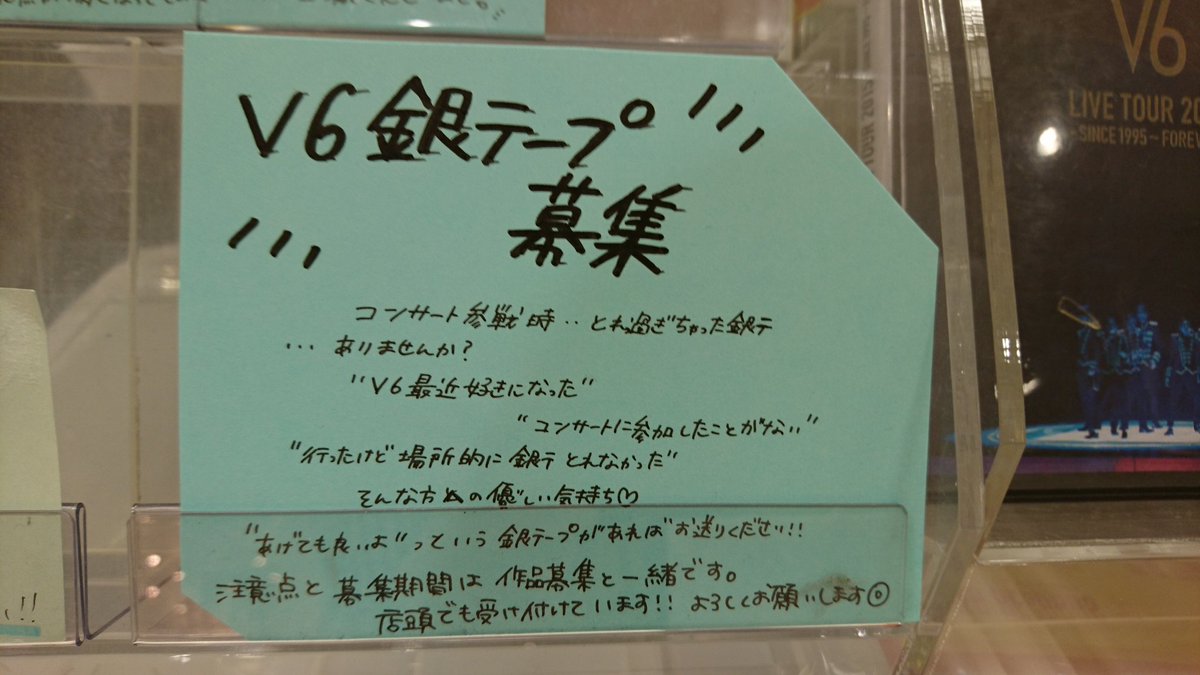 V6銀テープ
募集
コンサート参戦時‥とれ過ぎちゃった銀テ
…ありませんか?
"V6最近好きになった"
"コンサートに参加したことがない"
"行ったけど場所的に銀テとれなかった"
そんな方への優しい気持ち♡
"あげても良いよ"っという銀テープがあればお送りください!!
注意点と募集期間は作品募集と一緒です。
店頭でも受け付けています!! よろしくお願いします◎
V6
LIVE TOUR 2
SINCE 1995~FOREV